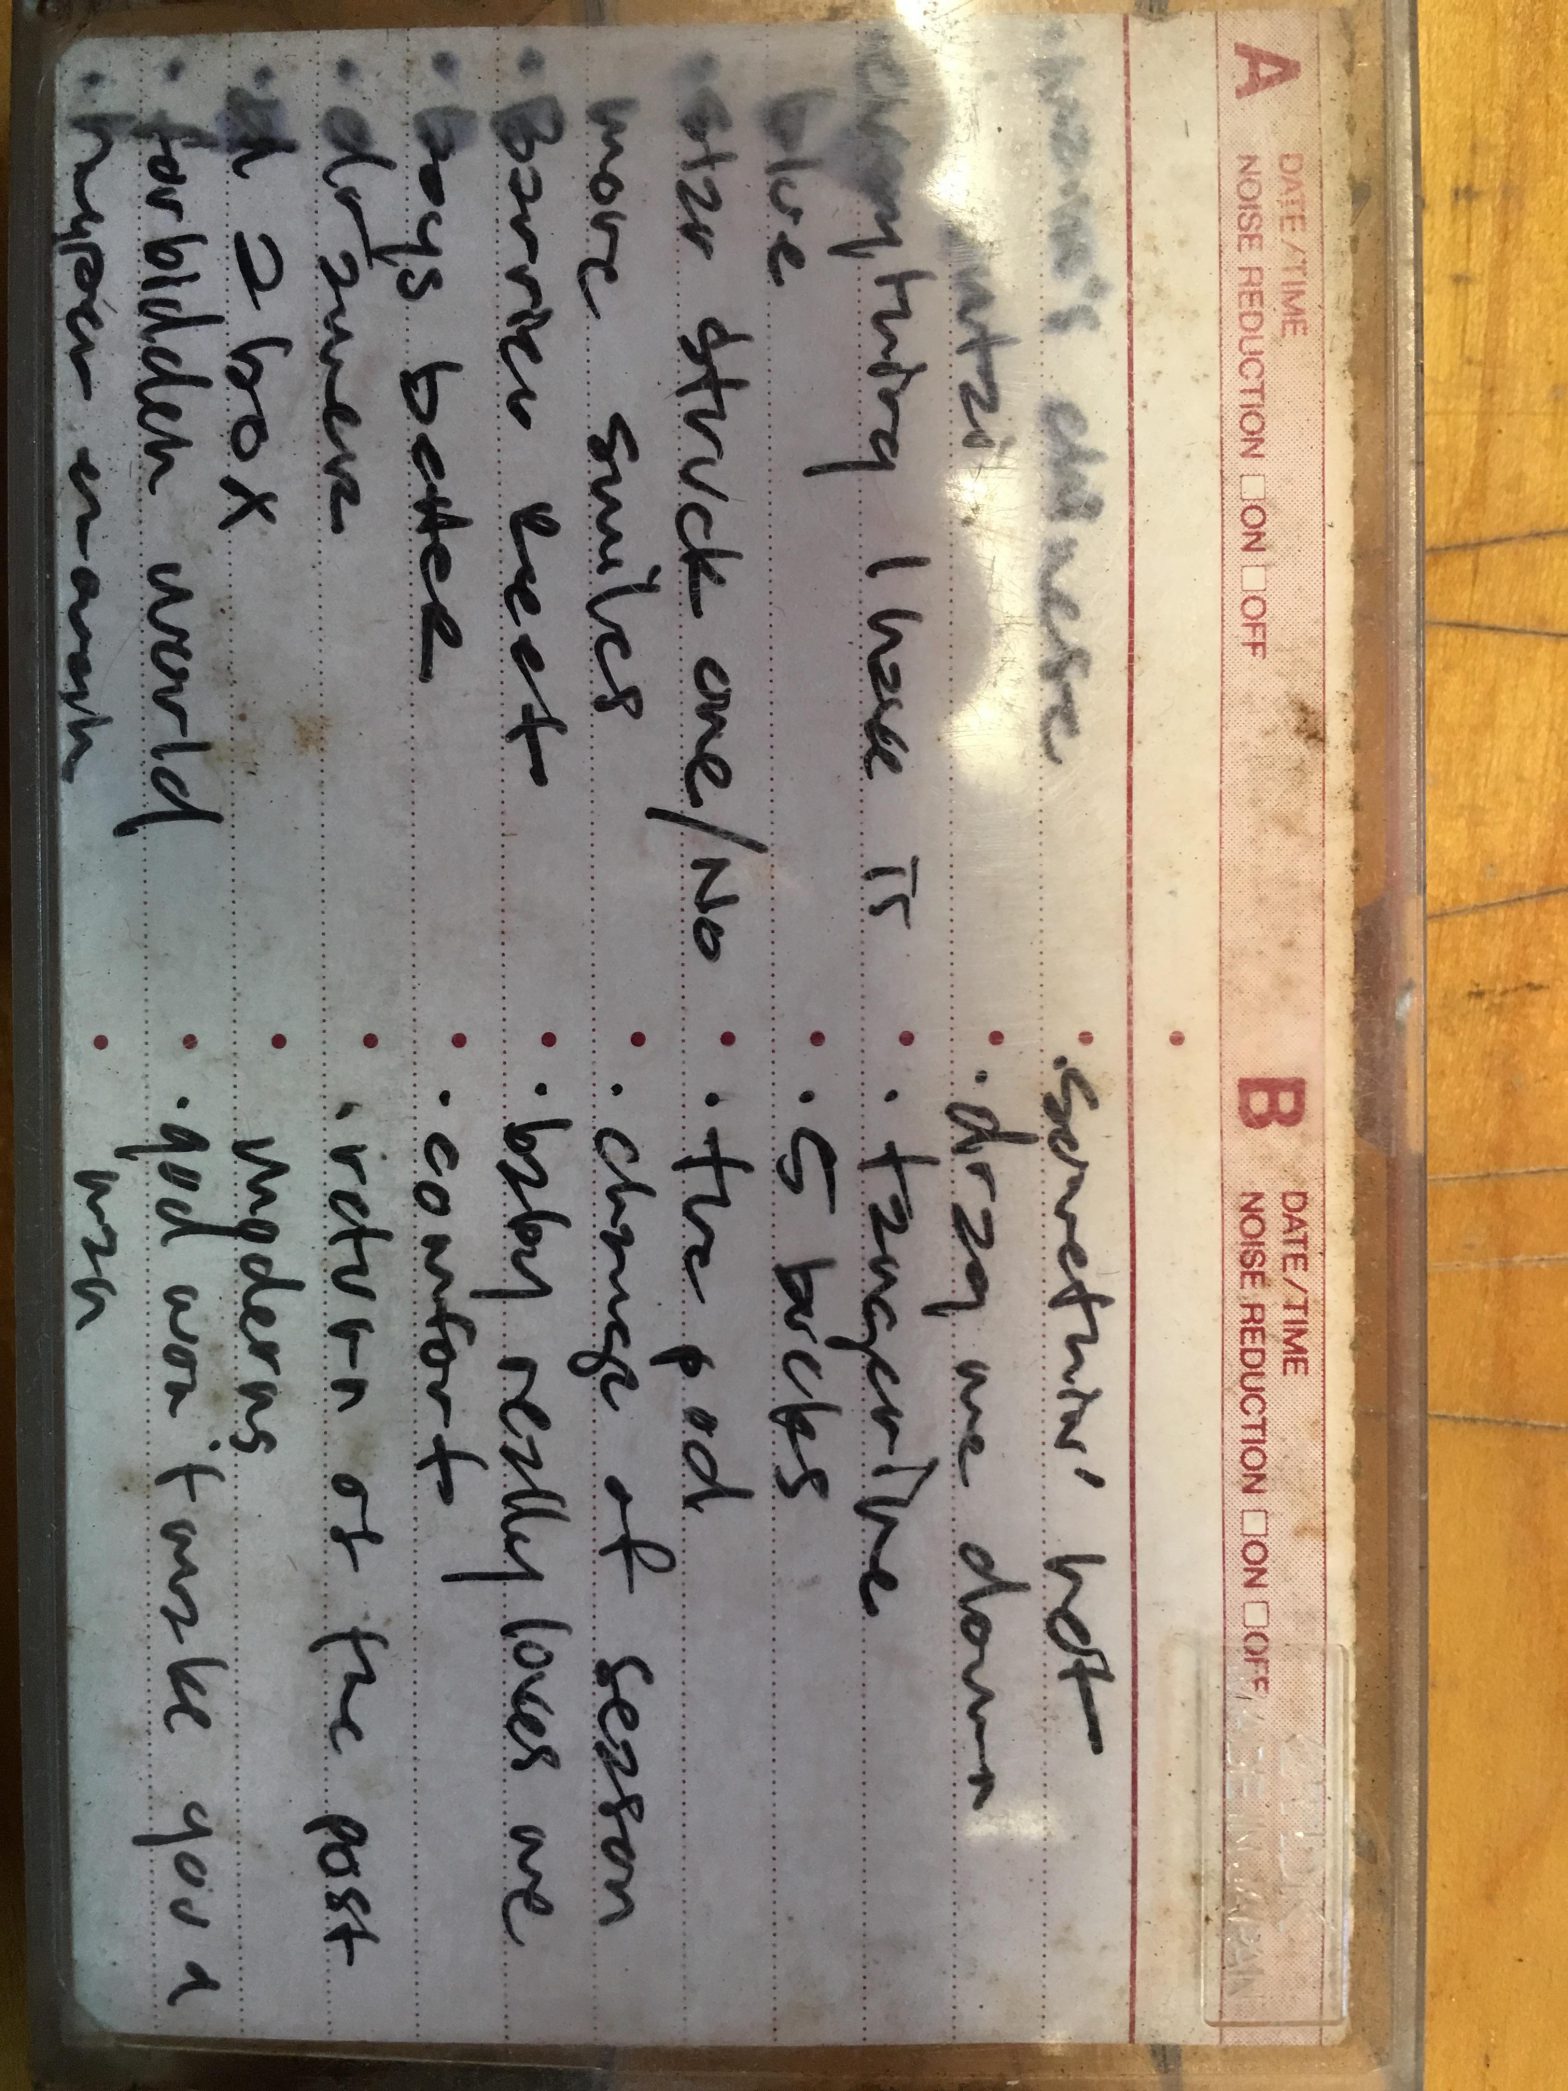 A DATE/TIME
NOISE REDUCTION □ON □OFF
chinese
everything I have is
blue
star struck one/No
more smiles
Barrier reef
boys better
drzmera
in a box
forbidden world
hyper enough
B DATE/TIME
NOISE REDUCTION □ON □OFF
• Somethin' hot
• drag me down
• tangerine
• 5 bucks
• the pod
• change of season
• baby really loves me
• comfort
• return of the post
moderns
• god won't make you a
man
TDK
MADE IN JAPAN